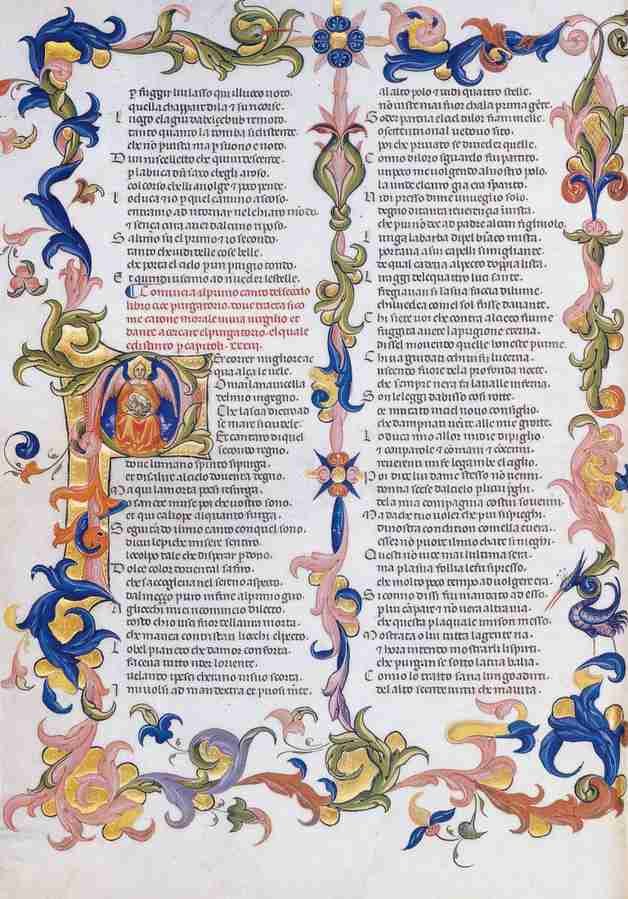 p fuggir lui lasso qui il luoco uoto.
quella chappar di la ⁊ su ricorse.
Luogo e la giu da belzebub remoto.
tanto quanto la tomba si distende.
che nō p uista ma p suono e noto.
Dun ruscelletto che quiui descende.
p la buca dū saxo chegli a roso.
col corso chelli auolge ⁊ poco pende.
Lo duca ⁊ io p quel camino ascoso.
entramo ad ritornar nel chiaro mōdo.
⁊ senza cura auer dalcun riposo.
Salimo su el primo ⁊ io secondo.
tanto che uidi delle cose belle.
che porta el cielo p un ptugio tondo.
Et quindi uscimo ad riueder le stelle.
Comincia il primo canto del secondo
libro cioe purgatorio. doue tracta sico
me catone morale uiene a uirgilio et
dante a cercare el purgatorio. el quale
e distinto p capitoli .xxxiii.
Per correr miglior acque
qua alça le uele.
Omai la nauicella
del mio ingegno.
Che lascia dietro ad
se mare si crudele.
Et cantaro di quel
secondo regno.
doue lumano spirito si purga.
et di salire al cielo diuenta degno.
Ma qui la morta poesi resurga.
o sancte muse poi che uostro sono.
et qui caliope alquanto surga.
Seguitando il mio canto con quel sono.
di cui le piche misere sentiro
lo colpo tale che disperar pdono.
Dolce color doriental zafiro.
che saccoglieua nel sereno aspecto.
dal mezzo puro infine al primo giro.
Agliocchi miei ricomincio dilecto.
tosto chio usci fuor dellaura morta.
che mauea contristati liocchi el pecto.
Lo bel pianeto che damor conforta.
faceua tutto rider loriente.
uelando i pesci cherano in sua scorta.
I mi uolsi ad man dextra et puosi mēte.
al altro polo ⁊ uidi quattro stelle.
nō uiste mai fuor challa prima gēte.
Goder parea el ciel di lor fiammelle.
o settentrional uedouo sito.
poi che priuato se di ueder quelle.
Comio di loro sguardo fui partito.
un poco me uolgendo al nostro polo.
la unde el carro gia era sparito.
Vidi presso di me un ueglio solo.
degno di tanta reuerentia in uista.
che piu nō dee ad padre alcun figliuolo.
Lunga la barba di pel biāco mista.
portaua. a suoi capelli simigliante.
de quai cadea al pecto doppia lista.
Li raggi de le quatro luci sancte.
fregiauan si la sua faccia di lume.
chil uedea comel sol fosse dauante.
Chi siete uoi che contra al cieco fiume
fuggita auete la prigione eterna.
diss el mouendo quelle honeste piume.
Chi ua guidati o chi ui fu lucerna.
uscendo fuore de la profonda nocte.
che sempre nera fa la ualle inferna.
Son le leggi dabisso cosi rotte.
o e mutato in ciel nouo consiglio.
che dampnati uenite alle mie grotte.
Lo duca mio allor mi die di piglio.
⁊ con parole ⁊ con mani ⁊ co cenni.
reuerenti mi fe le gambe el ciglio.
Poi dire lui da me stesso nō uenni.
donna scese dal cielo p li cui p̄ghi.
de la mia compagnia costui souenni.
Ma da che tuo uoler che piu si spieghi.
di nostra condition comella e uera.
esser nō puote il mio cha te si nieghi.
Questi nō uide mai lultima sera.
ma p la sua follia le fu si presso.
che molto poco tempo ad uolger era.
Si comio dissi fui mandato ad esso.
p lui cāpare ⁊ nō uera altra uia
che questa p la quale mi son messo.
Mostrata o lui tutta la gente ria
⁊ hora intendo mostrar li spiriti.
che purgan se sotto la tua balia.
Comio lo tratto saria lungo a dirti.
del alto scende uirtu che maiuta.